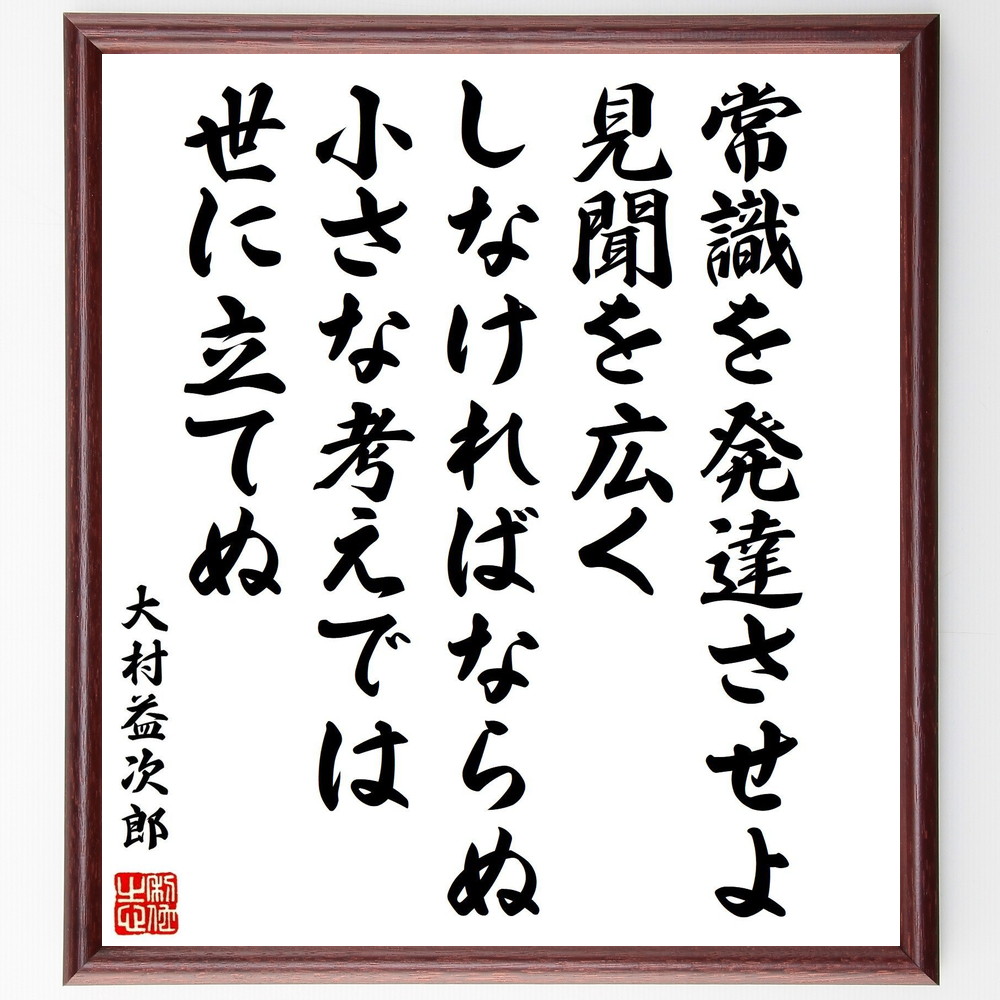 常識を発達させよ
見聞を広く
しなければならぬ
小さな考えでは
世に立てぬ
大村益次郎